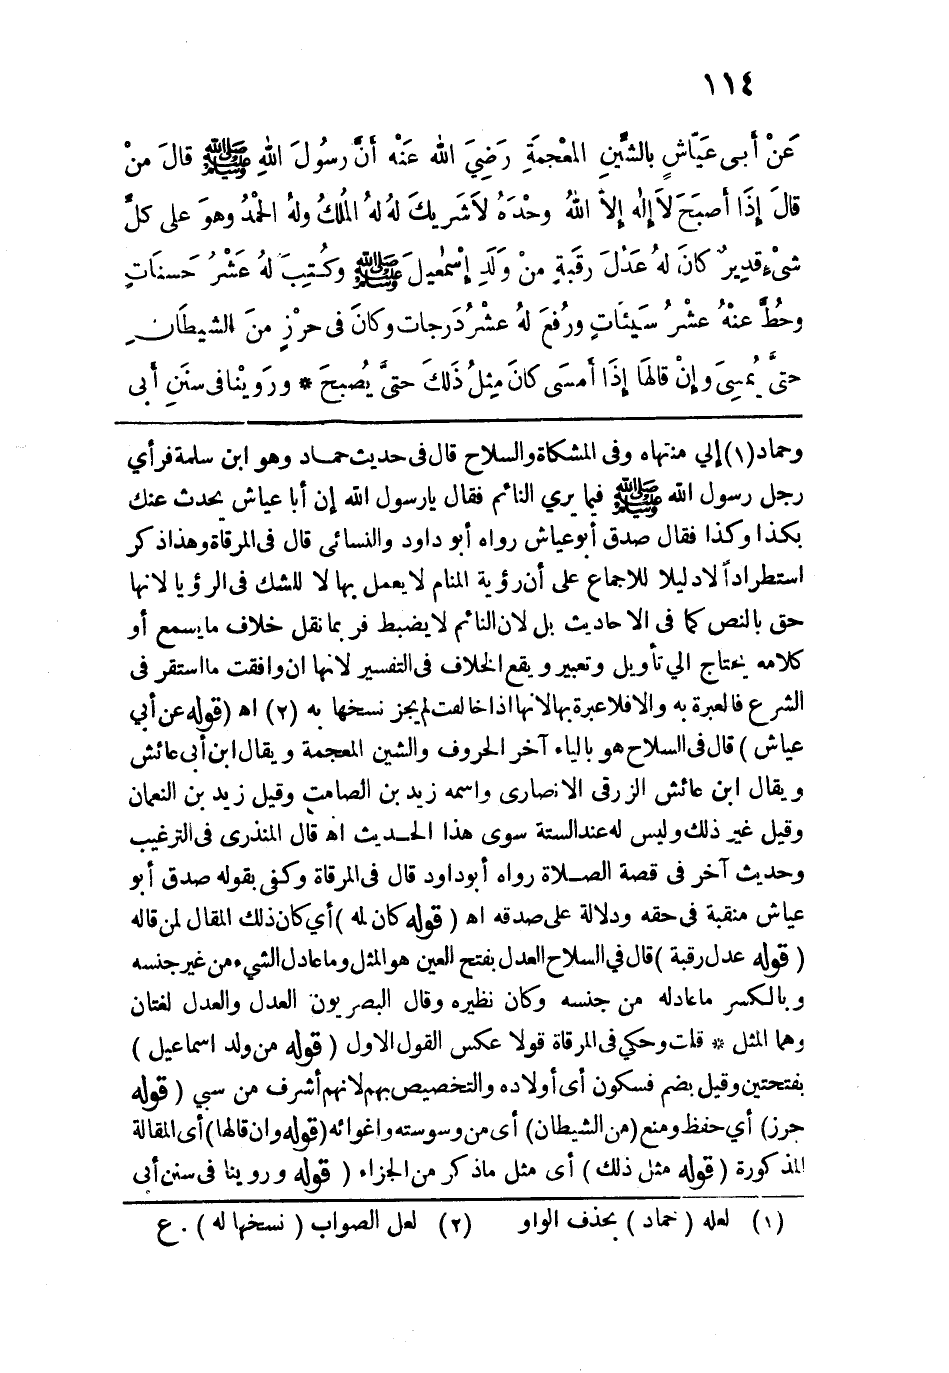 ١١٤
عَنْ أَبى عَيّاشٍ بالشِّينِ المعْجمةِ رَضِيَ اللّٰه عَنْه أنَّ رسُولَ اللّٰهِ ﷺ قالَ منْ
قالَ إذَا أصبَحَ لَاإلٰه إلاَّ اللّٰهُ وحْدَهُ لاَشَرِيكَ لَهُ لهُ المُلكُ ولهُ الحمْدُ وهوَ على كلِّ
شىْءٍ قدِيرٌ كانَ لهُ عَدْلَ رقَبةٍ منْ ولَدِ إسْمٰعيلَ ﷺ وكُتِبَ لهُ عَشْرُ حَسنَاتٍ
وحُطَّ عنْهُ عشْرُ سَيئَاتٍ ورُفعَ لهُ عشْرُ دَرجات وكانَ فى حرْزٍ منَ الشيطَانِ
حتىَّ يُمْسِىَ وإنْ قالهَا إذَا أمسَى كانَ مِثلُ ذَلكَ حتىَّ يُصبحَ * ورَوَيْنا فى سنَنِ أبى
وحماد(١)إلي منتهاه وفى المشكاة والسلاح قال فى حديث حمـاد وهو ابن سلمة فرأي
رجل رسول الله ﷺ فيما يري النائم فقال يارسول الله إن أبا عياش يحدث عنك
بكذا وكذا فقال صدق أبوعياش رواه أبو داود والنسائى قال فى المرقاة وهذا ذكر
استطراداً لادليلا للاجماع على أن رؤية المنام لايعمل بها لا للشك فى الرؤيا لانها
حق بالنص كما فى الاحاديث بل لان النائم لايضبط فربما نقل خلاف مايسمع أو
كلامه يحتاج الي تأويل وتعبير ويقع الخلاف فى التفسير لانها ان وافقت مااستقر فى
الشرع فالعبرة به والافلاعبرة بها لانها اذا خالفت لم يجز نسخها به (٢) اه (قوله عن أبي
عياش ) قال فى السلاح هو بالياء آخر الحروف والشين المعجمة ويقال ابن أبى عائش
ويقال ابن عائش الزرقى الانصارى واسمه زيد بن الصامت وقيل زيد بن النعمان
وقيل غير ذلك وليس له عند الستة سوى هذا الحـديث اه قال المنذرى فى الترغيب
وحديث آخر فى قصة الصـلاة رواه أبوداود قال فى المرقاة وكفى بقوله صدق أبو
عياش منقبة فى حقه ودلالة على صدقه اه ( قوله كان له ) أي كان ذلك المقال لمن قاله
( قوله عدل رقبة ) قال في السلاح العدل بفتح العين هو المثل وماعادل الشيء من غير جنسه
وبالكسر ماعادله من جنسه وكان نظيره وقال البصريون العدل والعدل لغتان
وهما المثل * قلت وحكي فى المرقاة قولا عكس القول الاول ( قوله من ولد اسماعيل )
بفتحتين وقيل بضم فسكون أى أولاده والتخصيص بهم لانهم أشرف من سبي ( قوله
حرز) أي حفظ ومنع (من الشيطان) أى من وسوسته واغوائه (قوله وان قالها) أى المقالة
المذكورة ( قوله مثل ذلك ) أى مثل ماذكر من الجزاء ( قوله وروينا فى سنن أبي
(١) لعله ( حماد ) بحذف الواو (٢) لعل الصواب ( نسخها له ) . ع